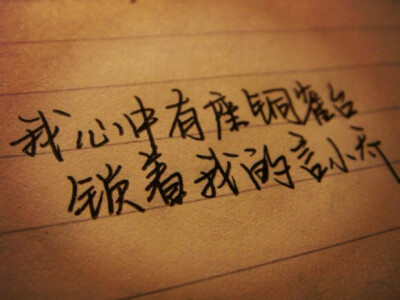 我心中有座铜雀台
锁着我的言小乔